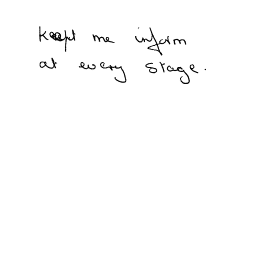 Keept me inform
at every stage.